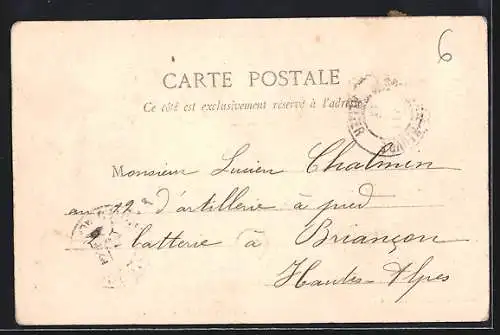 6
CARTE POSTALE
Ce côté est exclusivement réservé à l'adresse
Monsieur Lucien Chalmen
au 12. d'artillerie à pied
2 batterie à Briançon
Hautes-Alpes